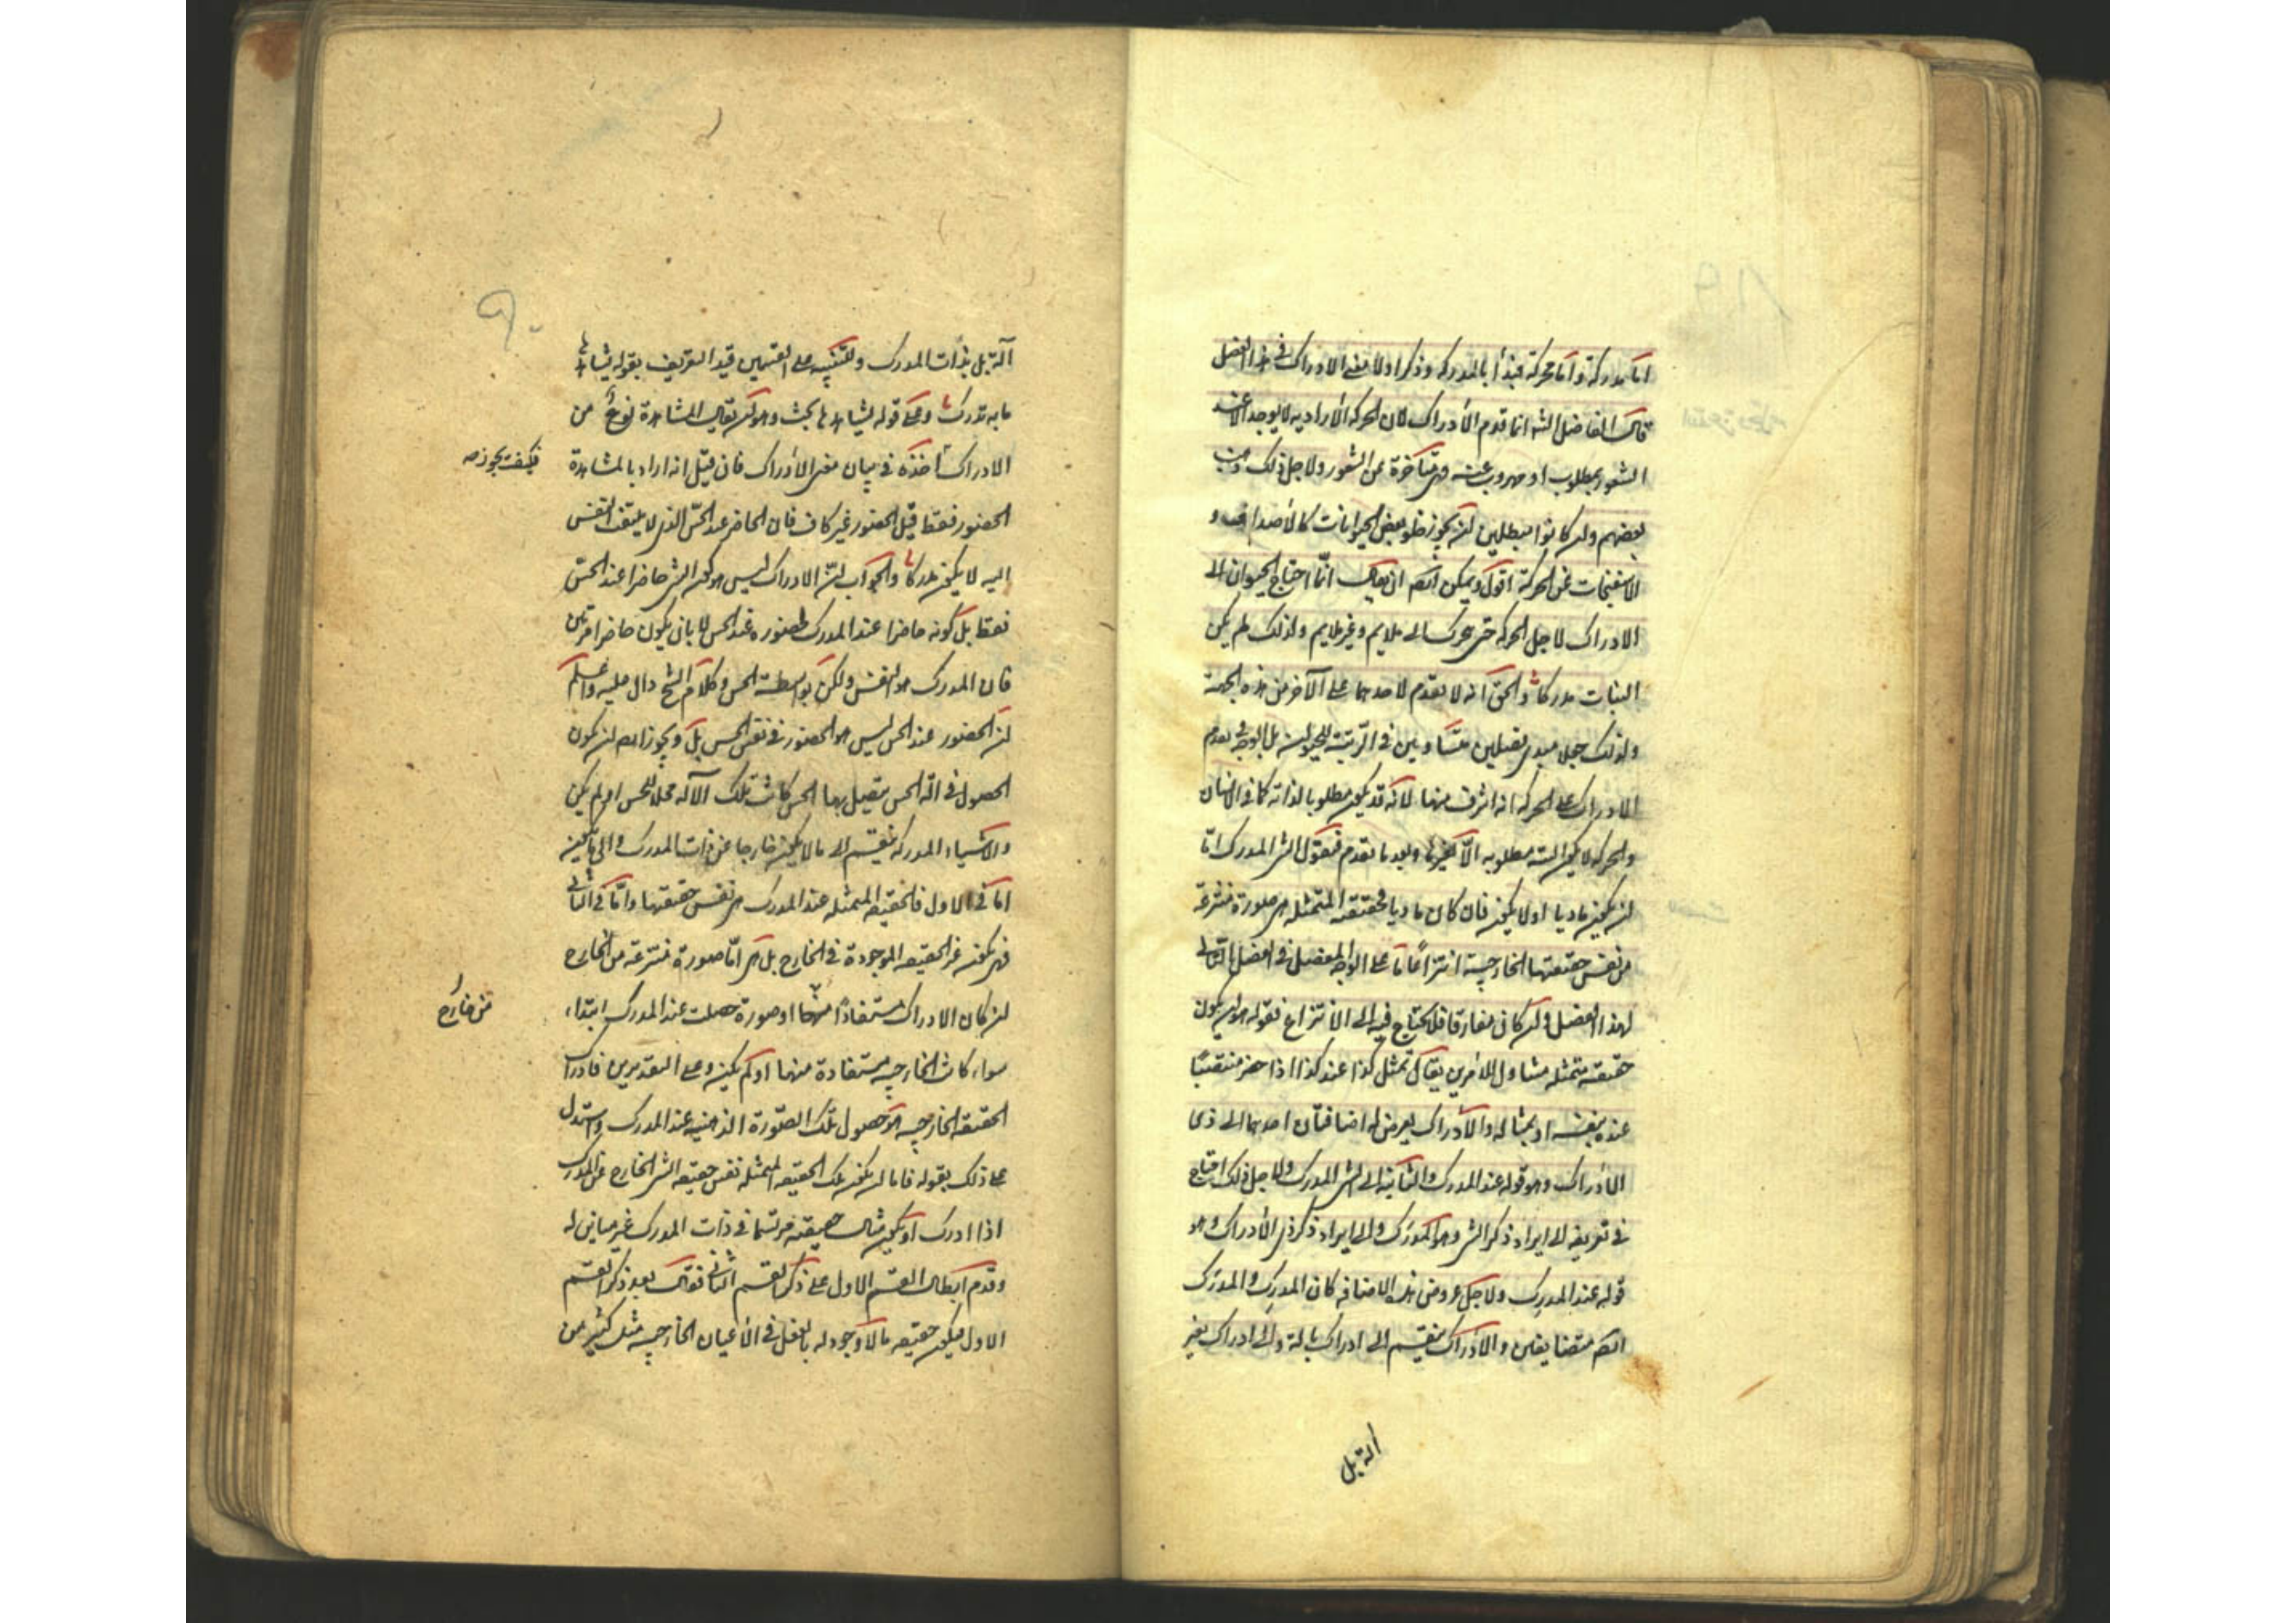 اما مدركة واما محركة فبدأ بالمدركة وذكر اولا معنى الادراك في هذا الفصل
قال الفاضل الشه انما قدم الادراك لان الحركة الارادية لا يوجد الا عند
الشعور بمطلوب او مهروب عنه فهى متأخرة عن الشعور ولاجل ذلك ذهب
بعضهم ولن كانوا مبطلين لن يجوز خلو بعض الحيوانات كالأصداف و
الاسفنجات عن الحركة اقول ويمكن ايضا ان يقال انما احتاج الحيوان الى
الادراك لاجل الحركة حتى يتحرك الى ملايم وغير ملايم ولذلك لم يكن
النبات مدركا والحق انه لا تقدم لاحدهما على الآخر من هذه الجهة
ولذلك جعلا مبدئى فصلين متساويين في الرتبة للحيوان بل الوجه تقدم
الادراك على الحركة انه اشرف منها لانه قد يكون مطلوبا لذاته كما في الانسان
والحركة لا يكون البتة مطلوبه الا لغيرها وبعد ما تقدم فنقول الشى المدرك اما
لن يكون ماديا او لا يكون فان كان ماديا فحقيقته المتمثله هى صورة منتزعة
من نفس حقيقتها الخارجية انتزاعا ما على الوجه المفصل في الفصل التالى
لهذا الفصل ولن كان مفارقا فلا يحتاج فيه الى الانتزاع فقوله هو لن يكون
حقيقته متمثله متناول للامرين يقال تمثل كذا عند كذا اذا حضر منتصبا
عنده بنفسه او بمثاله والادراك يعرض له اضافتان احدهما الى ذى
الادراك وهو قوله عند المدرك والثانية الى الشى المدرك ولاجل ذلك احتاج
في تعريفه الى ايراد ذكر الشى وهو المدرك والى ايراد ذكر ذى الادراك وهو
قوله عند المدرك ولاجل عروض هذه الاضافه كان المدرك والمدرك
ايضا متضايفين والادراك ينقسم الى ادراك بالة والى ادراك بغير
الة بل
آلة بل بذات المدرك وللتنبيه على القسمين قيد التعريف بقوله يشاهدها
ما به تدرك وعلى قوله يشاهدها بحث وهو لن يقال المشاهدة نوع من
الادراك اخذه في بيان معنى الادراك فان قيل انه اراد بالمشاهدة
فكيف يجوز صه
الحضور فقط قيل الحضور غير كاف فان الحاضر عند الحس الذى لا يلتفت النفس
اليه لا يكون مدركا والجواب لن الادراك ليس هو كون الشى حاضرا عند الحس
فقط بل كونه حاضرا عند المدرك لحضوره عند الحس لا بان يكون حاضرا مرتين
فان المدرك هو النفس ولكن بواسطة الحس وكلام الشيخ دال عليه واعلم
لن الحضور عند الحس ليس هو الحضور في نفس الحس بل ويجوز ايضا لن يكون
الحصول في آلة الحس يتصل بها الحس كانت تلك الآله محلا للحس او لم يكن
والاشياء المدركه ينقسم الى ما لا يكون خارجا عن ذات المدرك والى ما يكون
اما في الاول فالحقيقه المتمثله عند المدرك هى نفس حقيقتها واما في الثانى
فهى يكون غير الحقيقه الموجودة في الخارج بل هى اما صورة منتزعة من الخارج
لن كان الادراك مستفادا منها او صورة حصلت عند المدرك ابتداء
من خارج
سواء كانت الخارجيه مستفادة منها او لم يكن وعلى التقديرين فادراك
الحقيقه الخارجيه هو حصول تلك الصورة الذهنيه عند المدرك واستدل
على ذلك بقوله فاما لن يكون تلك الحقيقه المتمثله نفس حقيقه الشى الخارج عن المدرك
اذا ادرك او يكون مثال حقيقته مرتسما في ذات المدرك غير مباين له
وقدم ابطال القسم الاول على ذكر القسم الثانى فقال بعد ذكر القسم
الاول فيكون حقيقه ما لا وجود له بالفعل في الأعيان الخارجيه مثل كثير من